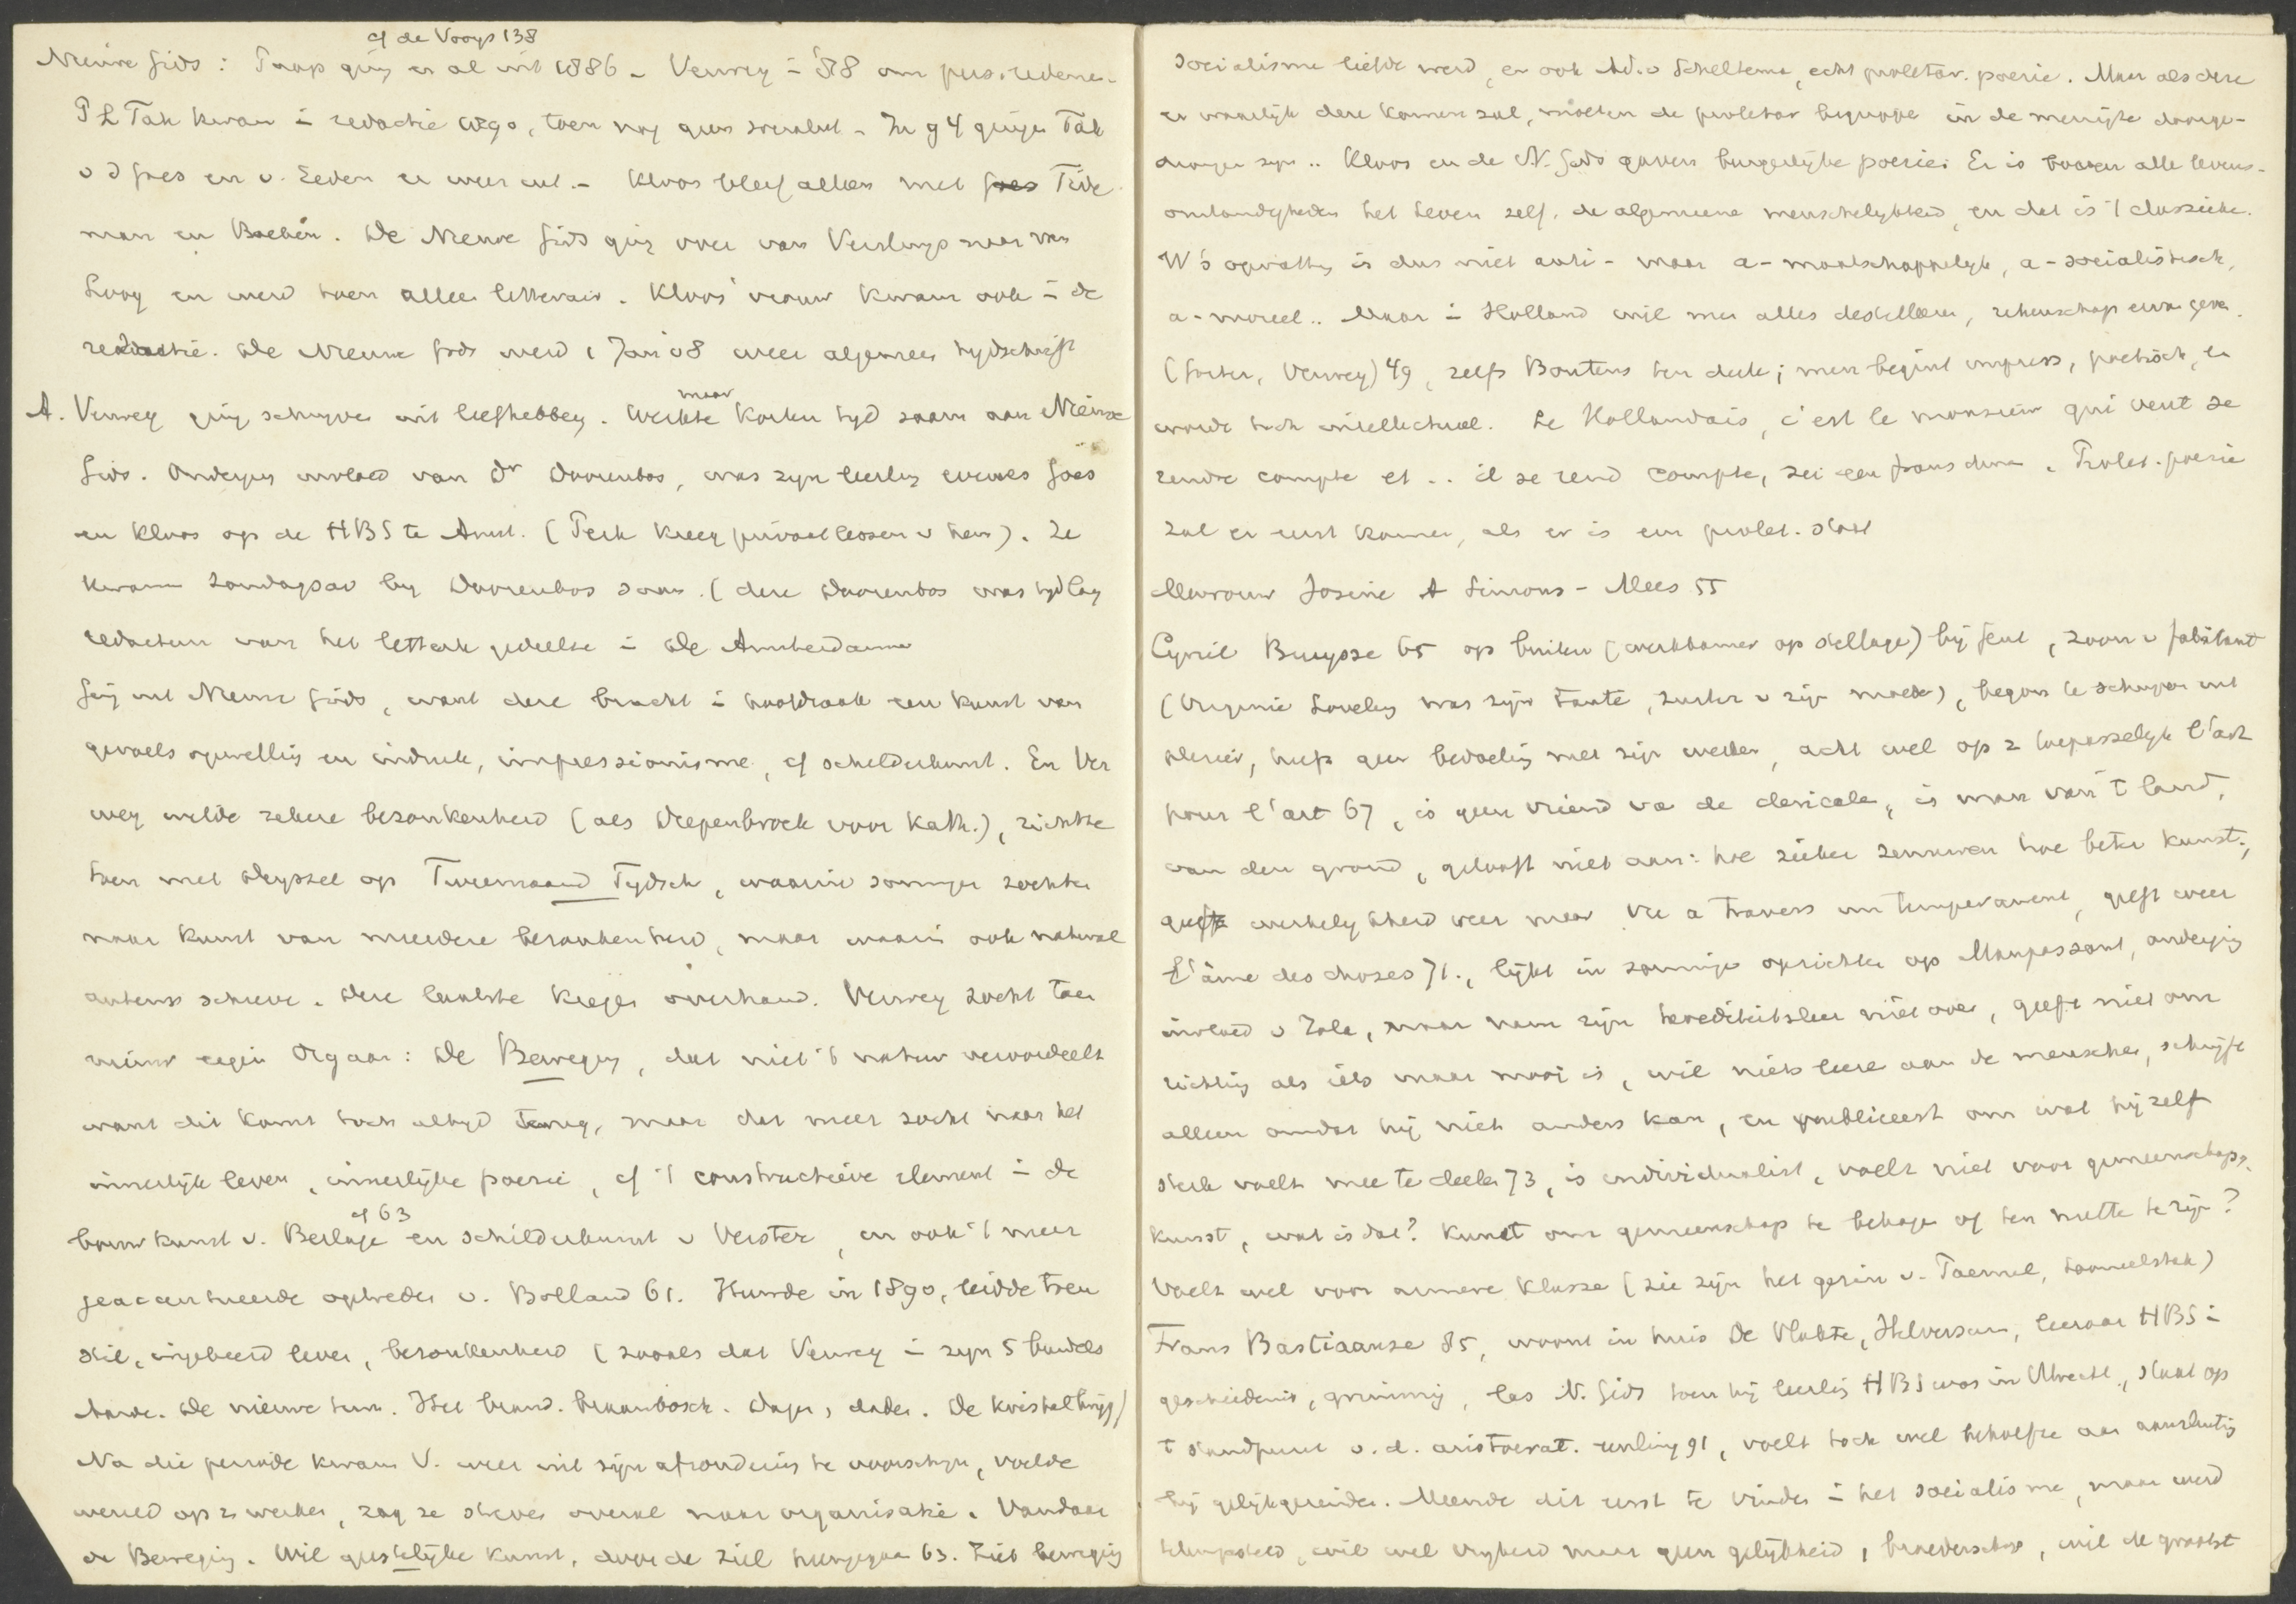 cf de Vooys 138
Nieuwe Gids: Paap ging er al uit 1886 - Verwey in '88 om pers. redenen.
P L Tak kwam in redactie 1890, toen nog geen socialist - In 94 gingen Tak
v d Goes en v. Eeden er weer uit. - Kloos bleef alleen met Tide
man en Boeken. De Nieuwe Gids ging over van Versluys naar van
Looy en werd toen alleen litterair. Kloos' vrouw kwam ook in de
redactie. De Nieuwe Gids werd 1 Jan 08 weer algemeen tydschrift
A. Verwey ging schryven uit liefhebbery. Werkte maar korten tyd saam aan Nieuwe
Gids. Onderging invloed van Dr Doorenbos, was zyn leerling evenals Goes
en Kloos op de HBS te Amst. (Perk kreeg privaatlessen v hem). Ze
kwamen Zondagsav by Doorenbos saam. (deze Doorenbos was tyd lang
redacteur van het letterk gedeelte in De Amsterdammer
Ging uit Nieuwe Gids, want deze bracht in hoofdzaak een kunst van
gevoels opwelling en indruk, impressionisme, cf schilderkunst. En Ver
wey wilde zekere bezonkenheid (als Diepenbrock voor Kath.), richtte
toen met Deyssel op Tweemaand Tydsch, waarin sommigen zochten
naar kunst van meerdere bezonkenheid, maar waarin ook natural
auteurs schreven. Deze laatste kregen overhand. Verwey zocht toen
nieuw eigen Orgaan: De Beweging, dat niet 't natur veroordeelt
want dit komt toch altyd terug, maar dat meer zocht naar het
innerlyk leven, innerlyke poezie, cf 't constructieve element in de
bouwkunst v. Berlage cf 63 en schilderkunst v Verster, en ook 't meer
geaccentueerde optreden v. Bolland 61. Huwde in 1890, leidde toen
stil, ingekeerd leven, bezonkenheid (zooals dat Verwey in zyn 5 bundels
Aarde. De nieuwe tuin. Het brand. braambosch. Dagen, daden. De kristaltwijg)
Na die periode kwam V. weer uit zijn afzondering te voorschyn, voelde
wereld op zn werken, zag ze streven overal naar organisatie. Vandaar
de Beweging. Wil geestelijke kunst, door de ziel heengegaan 63. Ziet beweging
socialisme liefde werd, en ook Ad. v Scheltema, echt proletar. poezie. Maar als deze
er waarlyk deze komen zal, moeten de proletar begrippen in de menigte doorge-
drongen zyn .. Kloos en de N. Gids gaven burgerlyke poezie. Er is boven alle levens-
omstandigheden het leven zelf, de algemeene menschelykheid, en dat is 't classieke.
W's opvatting is dus niet anti- maar a-maatschappelyk, a-socialistisch,
a-moreel .. Maar in Holland wil men alles destilleeren, rekenschap ervan geven
(Gorter, Verwey) 49, zelfs Boutens ten deele; men begint impress, poetisch, en
wordt toch intellectueel. Le Hollandais, c'est le monsieur qui veut se
rendre compte et .. il se rend compte, zei een fransche dame. Prolet. poezie
zal er eerst komen, als er is een prolet. staat
Mevrouw Josine A Simons-Mees 55
Cyriel Buysse 65 op buiten (werkkamer op stellage) bij Gent, zoon v fabrikant
(Virginie Loveling was zijn tante, zuster v zijn moeder), begon te schrijven uit
plezier, heeft geen bedoeling met zijn werken, acht wel op z toepasselyk l'art
pour l'art 67, is geen vriend va de clericalen, is man van 't land,
van den grond, gelooft niet aan: hoe zieker zenuwen hoe beter kunst;
geeft werkelykheid weer maar vue a travers un temperament, geeft weer
l'âme des choses 71., lijkt in sommige opzichten op Maupassant, onderging
invloed v Zola, maar nam zijn herediteitsleer niet over, geeft niet om
richting als iets maar mooi is, wil niets leeren aan de menschen, schrijft
alleen omdat hij niet anders kan, en publiceert om wat hij zelf
sterk voelt mee te deelen 73, is individualist, voelt niet voor gemeenschaps-
kunst, wat is dat? Kunst om gemeenschap te behagen of ten nutte te zijn?
Voelt wel voor armere klasse (zie zijn het gezin v. Paemel, tooneelstuk)
Frans Bastiaanse 85, woont in huis De Vlakte, Hilversum, leeraar HBS in
geschiedenis, las N. Gids toen hij leerling HBS was in Utrecht., staat op
't standpunt v. d. aristocrat. eenling 91, voelt toch wel behoefte aan aansluiting
bij gelijkgezinden. Meende dit eerst te vinden in het socialisme, maar werd
teleurgesteld, wil wel vryheid maar geen gelijkheid, broederschap, wil de grootst